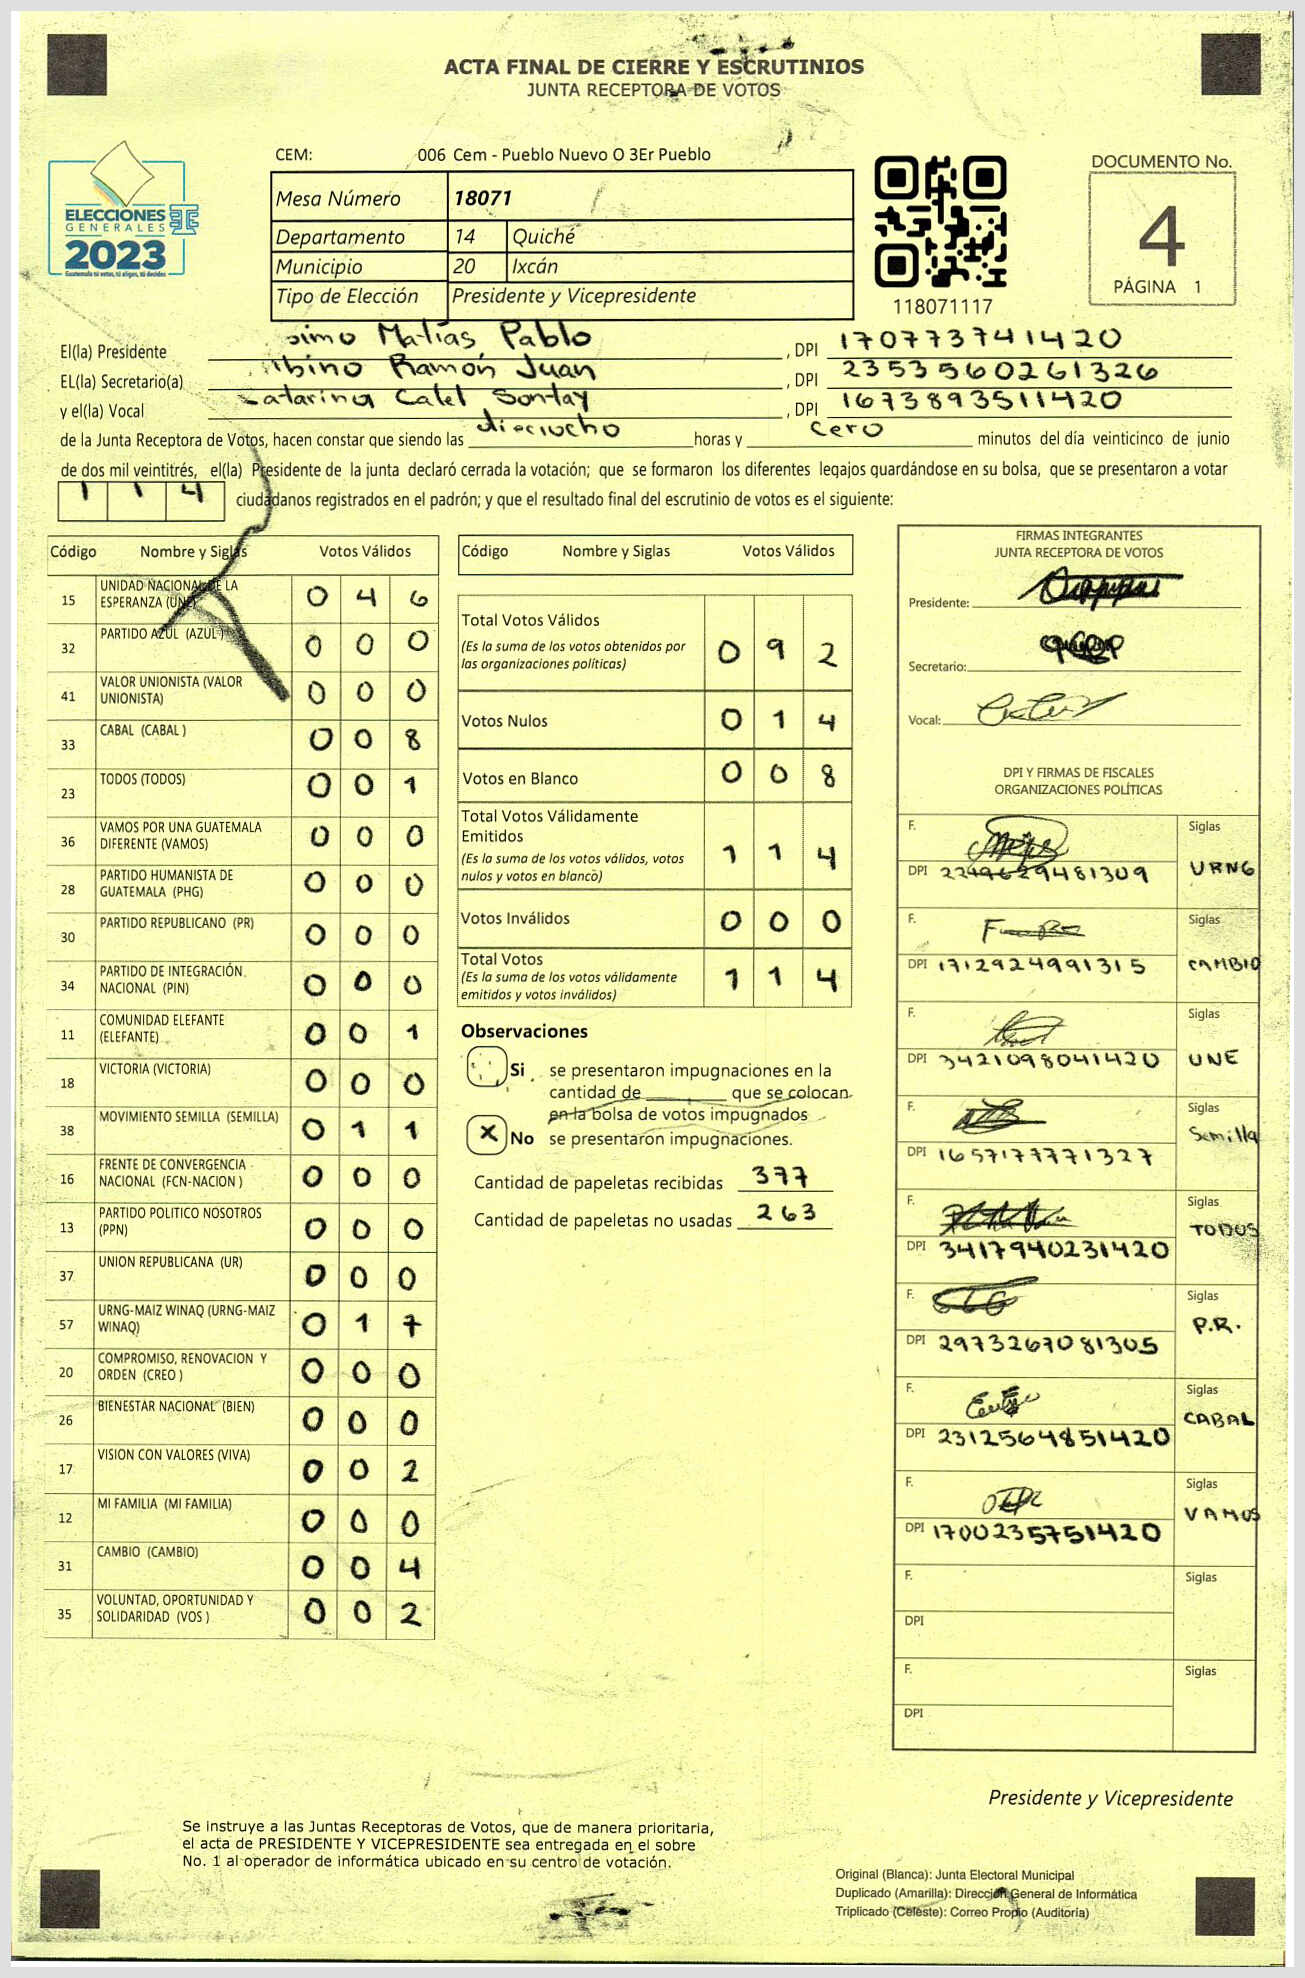 ACTA FINAL DE CIERRE Y ESCRUTINIOS
JUNTA RECEPTORA DE VOTOS
CEM: 006 Cem - Pueblo Nuevo O 3Er Pueblo
DOCUMENTO No.
4
PÁGINA 1
ELECCIONES
GENERALES
2023
Guatemala tú votas, tú eliges, tú decides
Mesa Número 18071
Departamento 14 Quiché
Municipio 20 Ixcán
Tipo de Elección Presidente y Vicepresidente
118071117
El(la) Presidente Matías Pablo , DPI 1707737411420
EL(la) Secretario(a) Ramón Juan , DPI 2353560261326
y el(la) Vocal Catarina Calel Sontay , DPI 1673893511420
de la Junta Receptora de Votos, hacen constar que siendo las dieciocho horas y cero minutos del día veinticinco de junio
de dos mil veintitrés, el(la) Presidente de la junta declaró cerrada la votación; que se formaron los diferentes legajos guardándose en su bolsa, que se presentaron a votar
114 ciudadanos registrados en el padrón; y que el resultado final del escrutinio de votos es el siguiente:
Código Nombre y Siglas Votos Válidos
15 UNIDAD NACIONAL DE LA ESPERANZA (UNE) 0 4 6
32 PARTIDO AZUL (AZUL) 0 0 0
41 VALOR UNIONISTA (VALOR UNIONISTA) 0 0 0
33 CABAL (CABAL ) 0 0 8
23 TODOS (TODOS) 0 0 1
36 VAMOS POR UNA GUATEMALA DIFERENTE (VAMOS) 0 0 0
28 PARTIDO HUMANISTA DE GUATEMALA (PHG) 0 0 0
30 PARTIDO REPUBLICANO (PR) 0 0 0
34 PARTIDO DE INTEGRACIÓN NACIONAL (PIN) 0 0 0
11 COMUNIDAD ELEFANTE (ELEFANTE) 0 0 1
18 VICTORIA (VICTORIA) 0 0 0
38 MOVIMIENTO SEMILLA (SEMILLA) 0 1 1
16 FRENTE DE CONVERGENCIA NACIONAL (FCN-NACION ) 0 0 0
13 PARTIDO POLITICO NOSOTROS (PPN) 0 0 0
37 UNION REPUBLICANA (UR) 0 0 0
57 URNG-MAIZ WINAQ (URNG-MAIZ WINAQ) 0 1 7
20 COMPROMISO, RENOVACION Y ORDEN (CREO ) 0 0 0
26 BIENESTAR NACIONAL (BIEN) 0 0 0
17 VISION CON VALORES (VIVA) 0 0 2
12 MI FAMILIA (MI FAMILIA) 0 0 0
31 CAMBIO (CAMBIO) 0 0 4
35 VOLUNTAD, OPORTUNIDAD Y SOLIDARIDAD (VOS ) 0 0 2
Código Nombre y Siglas Votos Válidos
Total Votos Válidos 0 9 2
(Es la suma de los votos obtenidos por
las organizaciones políticas)
Votos Nulos 0 1 4
Votos en Blanco 0 0 8
Total Votos Válidamente
Emitidos 1 1 4
(Es la suma de los votos válidos, votos
nulos y votos en blanco)
Votos Inválidos 0 0 0
Total Votos 1 1 4
(Es la suma de los votos válidamente
emitidos y votos inválidos)
Observaciones
Si se presentaron impugnaciones en la
cantidad de ________ que se colocan
en la bolsa de votos impugnados
X No se presentaron impugnaciones.
Cantidad de papeletas recibidas 377
Cantidad de papeletas no usadas 263
FIRMAS INTEGRANTES
JUNTA RECEPTORA DE VOTOS
Presidente:
Secretario:
Vocal:
DPI Y FIRMAS DE FISCALES
ORGANIZACIONES POLÍTICAS
F. Siglas
DPI 2249629481309 URNG
F. Siglas
DPI 1712924991315 CAMBIO
F. Siglas
DPI 3421098041420 UNE
F. Siglas
DPI 1657177771327 Semilla
F. Siglas
DPI 3417940231420 TODOS
F. Siglas
DPI 2973267081305 P.R.
F. Siglas
DPI 2312564851420 CABAL
F. Siglas
DPI 1700235751420 VAMOS
F. Siglas
DPI
F. Siglas
DPI
Presidente y Vicepresidente
Se instruye a las Juntas Receptoras de Votos, que de manera prioritaria,
el acta de PRESIDENTE Y VICEPRESIDENTE sea entregada en el sobre
No. 1 al operador de informática ubicado en su centro de votación.
Original (Blanca): Junta Electoral Municipal
Duplicado (Amarilla): Dirección General de Informática
Triplicado (Celeste): Correo Propio (Auditoría)